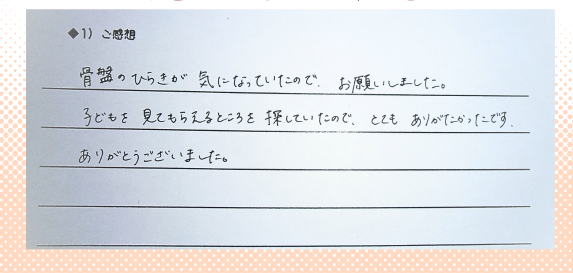 ◆1) ご感想
骨盤のひらきが 気になっていたので、お願いしました。
子どもを 見てもらえるところを 探していたので、とても ありがたかったです.
ありがとうございました。